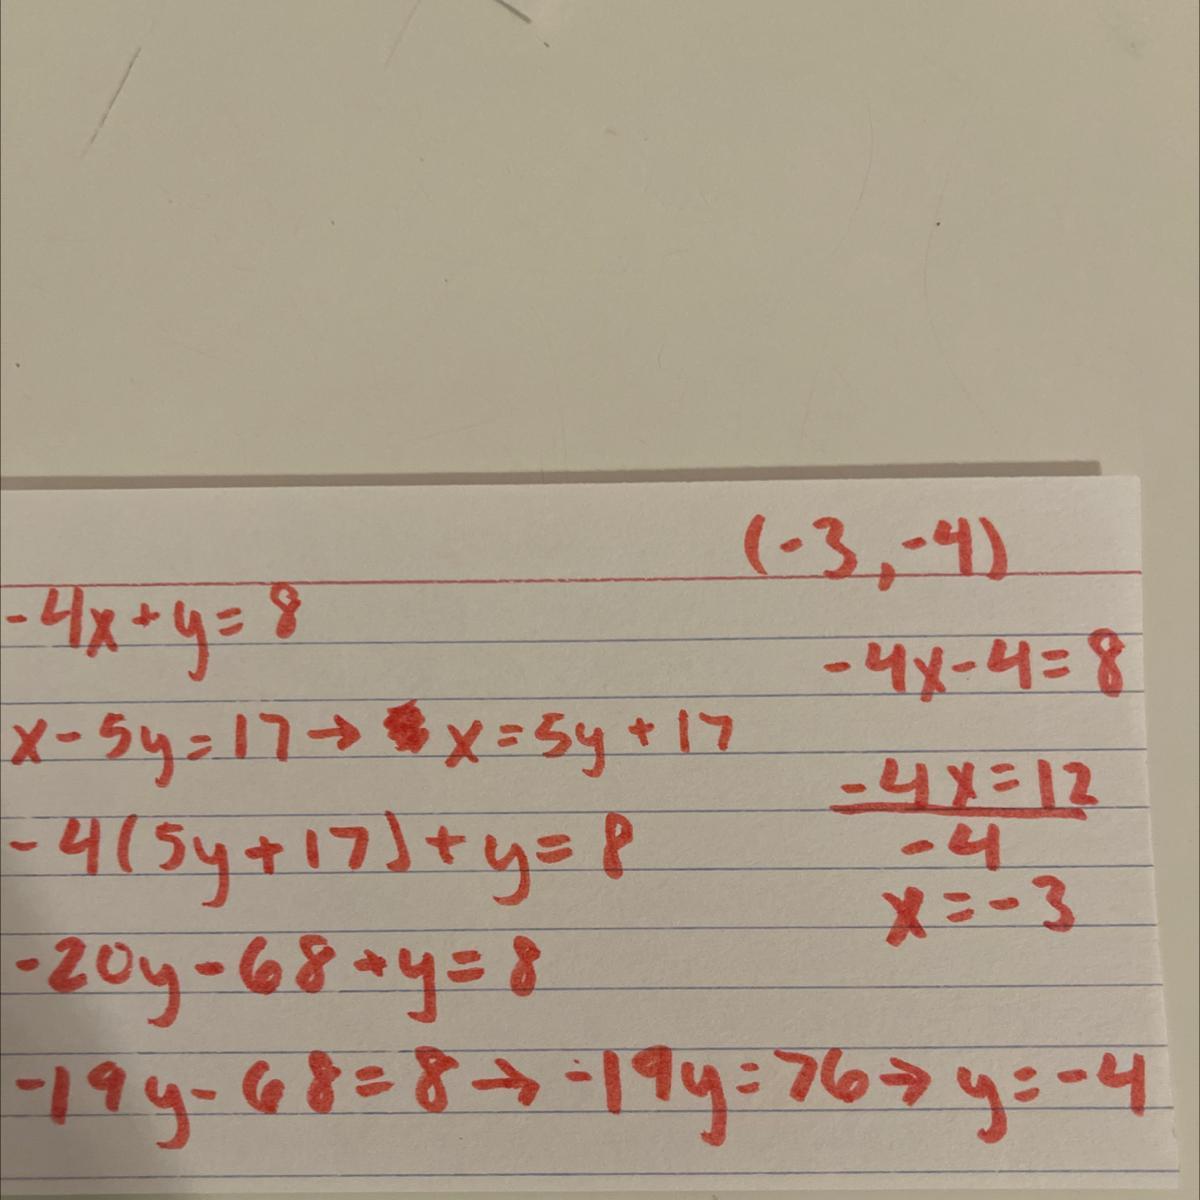 (-3, -4)
-4x + y = 8
x - 5y = 17 → x = 5y + 17
-4(5y + 17) + y = 8
-20y - 68 + y = 8
-19y - 68 = 8 → -19y = 76 → y = -4
-4x - 4 = 8
-4x = 12
-4
x = -3